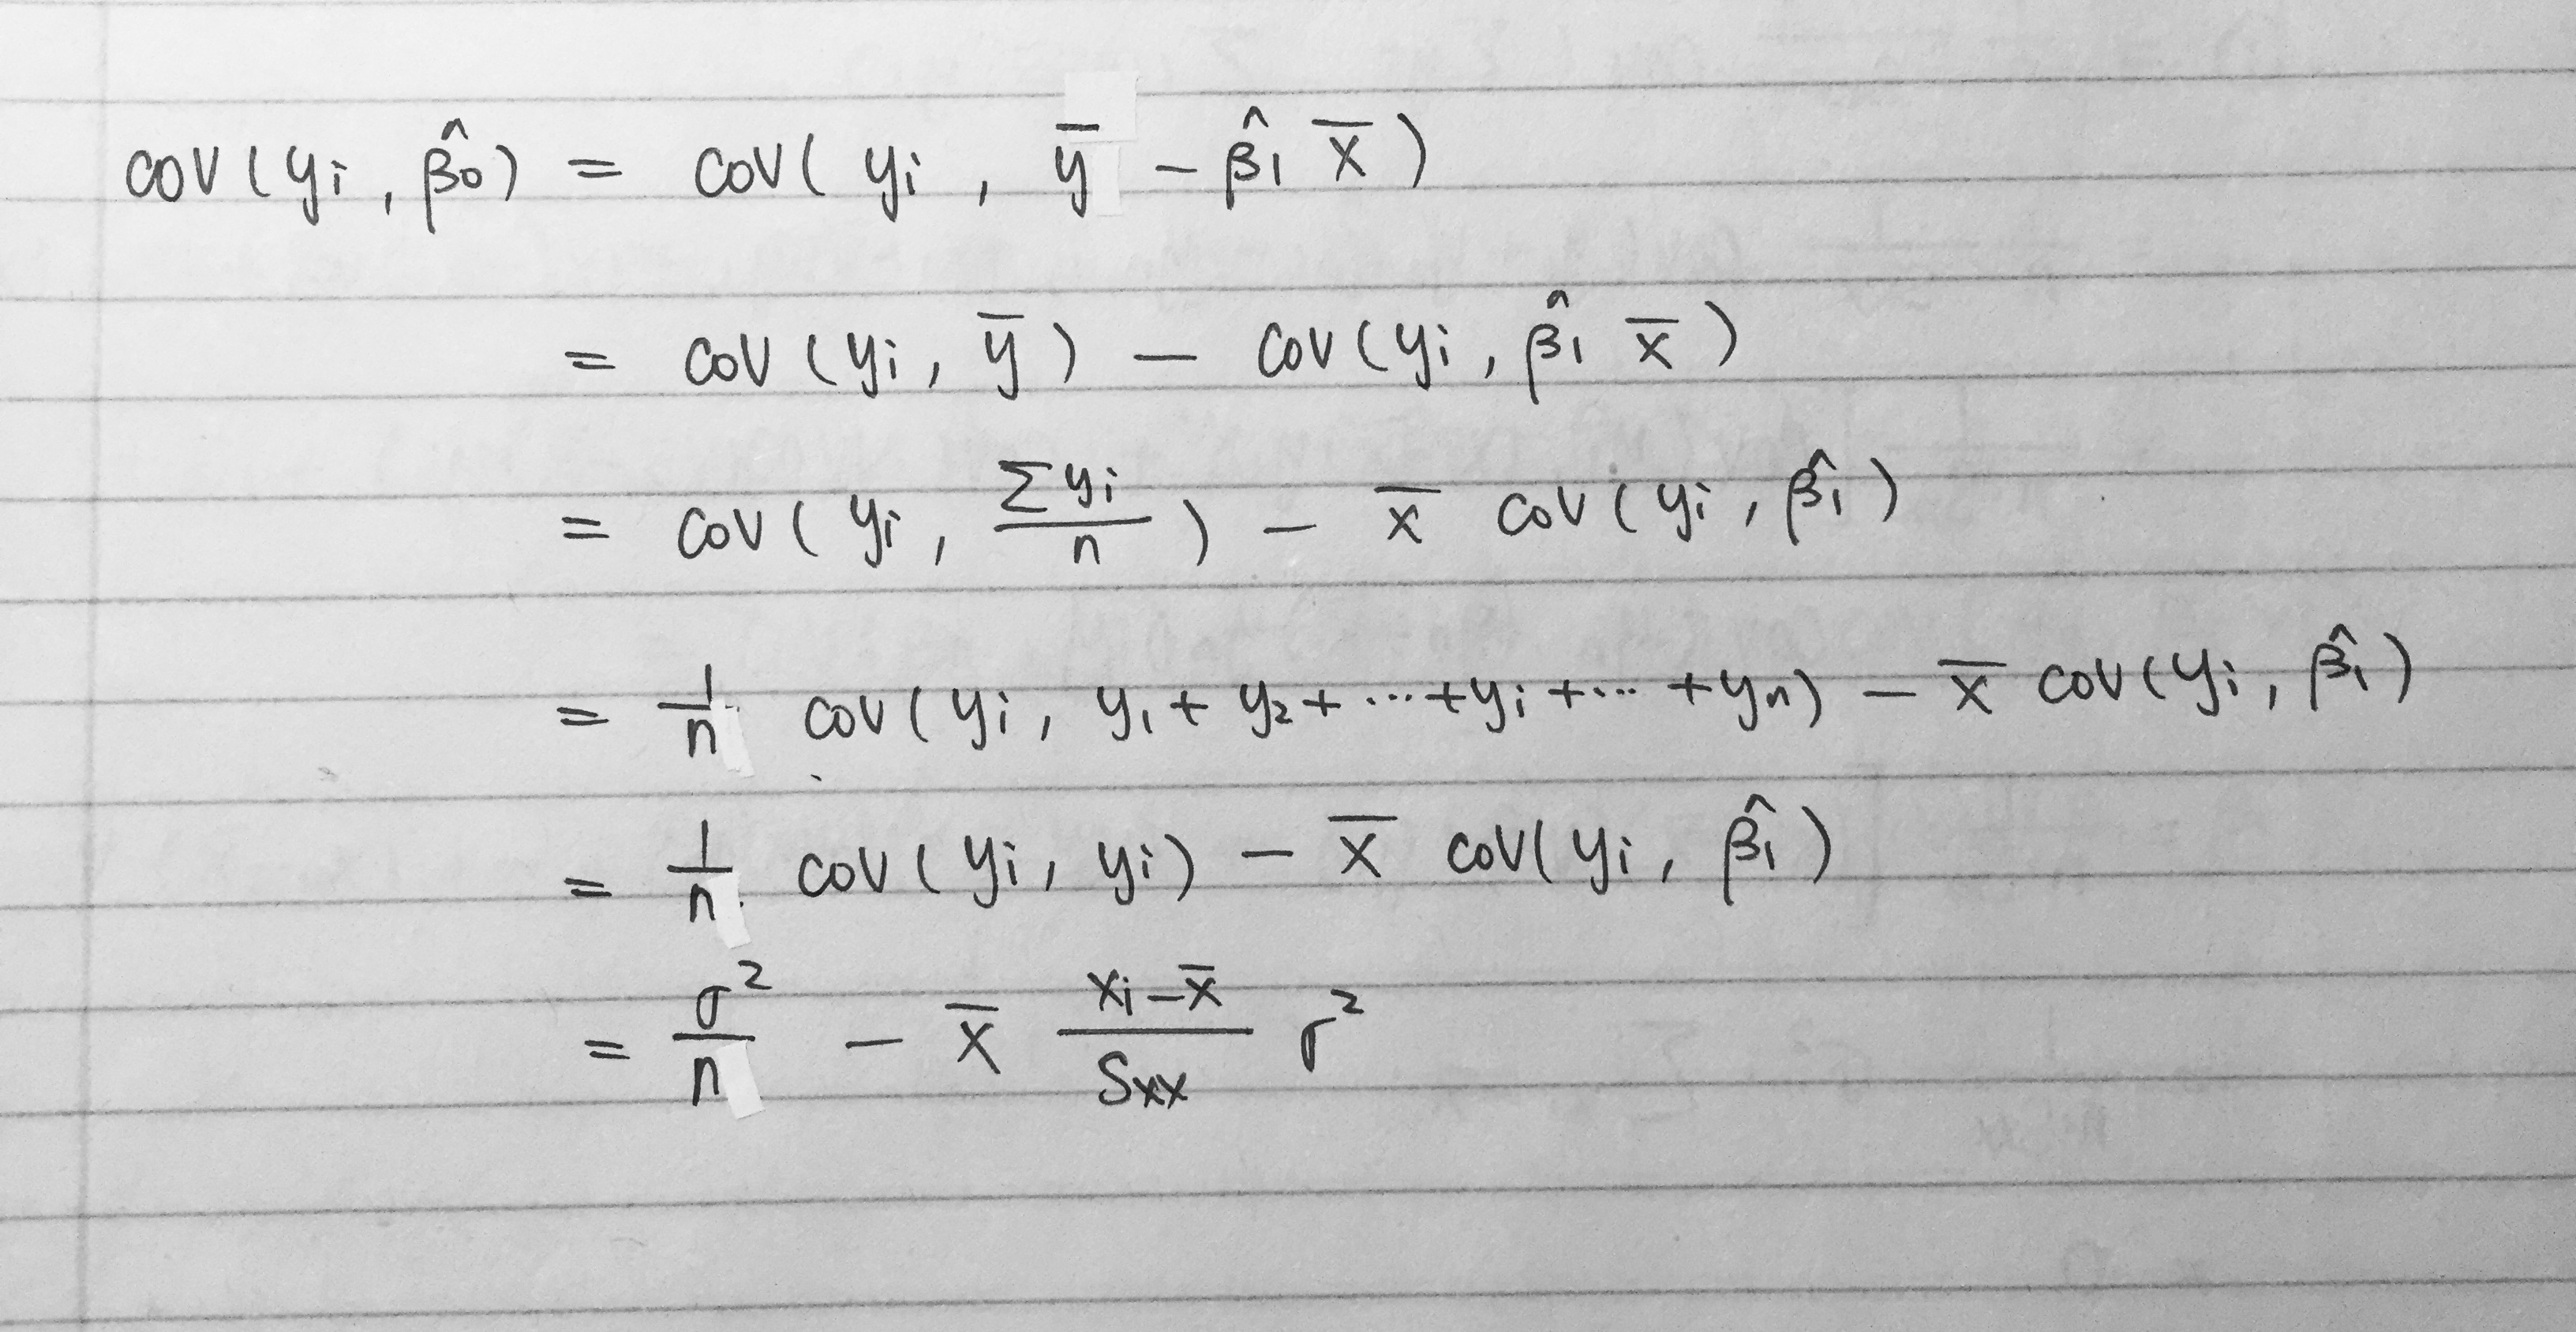 cov(yᵢ, β̂₀) = cov(yᵢ, ȳ - β̂₁ x̄)
= cov(yᵢ, ȳ) - cov(yᵢ, β̂₁ x̄)
= cov(yᵢ, Σyᵢ/n) - x̄ cov(yᵢ, β̂₁)
= 1/n cov(yᵢ, y₁ + y₂ + ... + yᵢ + ... + yₙ) - x̄ cov(yᵢ, β̂₁)
= 1/n cov(yᵢ, yᵢ) - x̄ cov(yᵢ, β̂₁)
= σ²/n - x̄ (xᵢ - x̄)/Sxx σ²